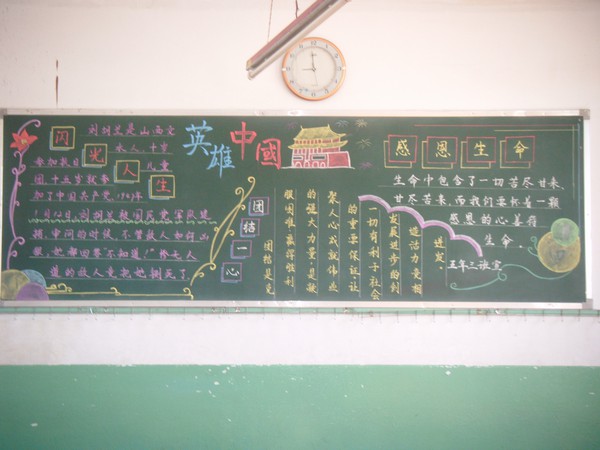 闪光人生
刘胡兰是山西文
水人,十岁
参加敌日儿童
团十五岁就参
加了中国共产党,1947年
一月12日,刘胡兰被国民党军队逮
捕,审问的时候,不管敌人如何
狠,她都回答"不知道!"惨无人
道的敌人竟把她 死了
英雄中國
团结一心
团结是克
服困难赢得胜利
的强大力量,是凝
聚人心成就伟业
的重要保证,让
一切有利于社会
发展进步的创
造活力竞相
迸发.
感恩生命
生命中包含了一切苦尽甘来、
甘尽苦来,而我们要怀着一颗
感恩的心善待
生命.
五年三班宣